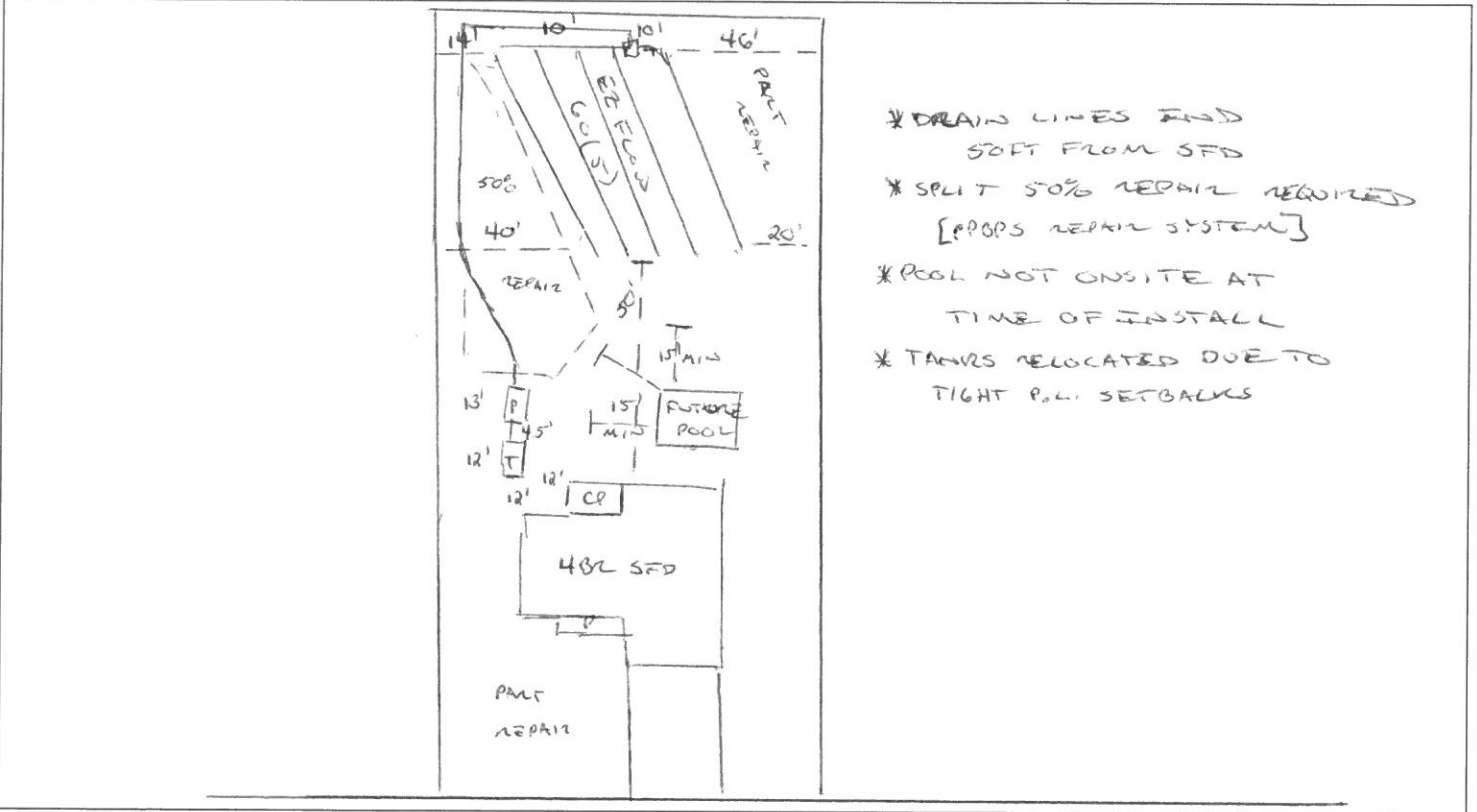 10' 10'
14' 46'
PART
REPAIR
EZ FLOW
60(5)
50%
40' 20'
REPAIR
50'
15' MIN
13' P
45'
15'
MIN
FUTURE
POOL
12' T
12' 12' CP
4BR SFD
P
PART
REPAIR
* DRAIN LINES END
50FT FROM SFD
* SPLIT 50% REPAIR REQUIRED
[PPBPS REPAIR SYSTEM]
* POOL NOT ONSITE AT
TIME OF INSTALL
* TANKS RELOCATED DUE TO
TIGHT P.L. SETBACKS